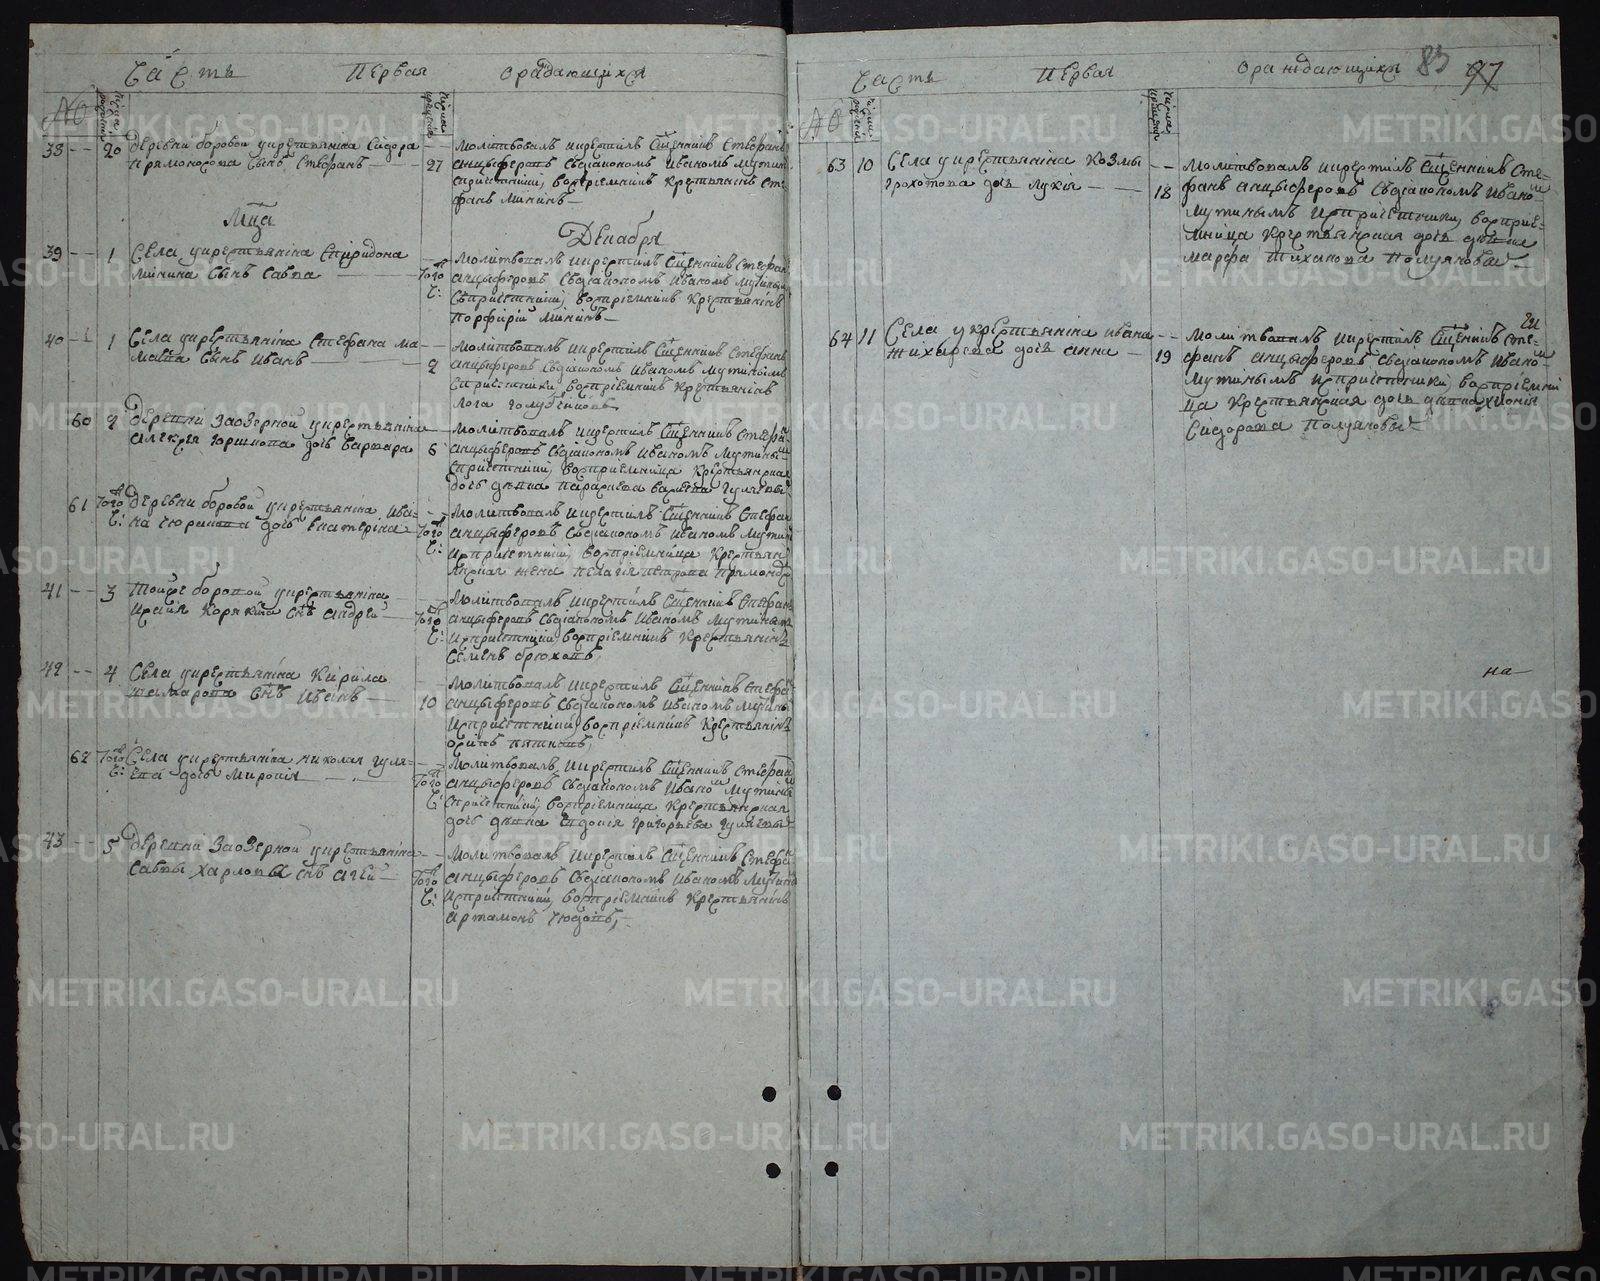 Часть Первая ораждающихся
№ числа рождения числа крещения
38 -- 20 деревни боровой укрестьянина Сидора
Прямоносова сынъ Стефанъ
27 Молитвовалъ икрестилъ Сщенникъ Стефанъ
анцыферовъ Сведіакономъ Иваномъ Мутин
Спричетники, восприемникъ Крестьянинъ Сте
фанъ Мининъ
Мца Декабря
39 -- 1 Села укрестьянина Спиридона
Минина Сынъ Савва
того ч: Молитвовалъ икрестилъ Сщенникъ Стефанъ
анцыферовъ Сведіакономъ Иваномъ Мутины
Спричетники, восприемникъ Крестьянинъ
Порфирій Мининъ
40 -- 1 Села укрестьянина Стефана ма
маева Сынъ Иванъ
2 Молитвовалъ икрестилъ Сщенникъ Стефанъ
анцыферовъ Сведіакономъ Иваномъ Мутинымъ
Спричетники, восприемникъ Крестьянинъ
60 2 деревни Заозерной укрестьянина
алексея горшкова дочь варвара
6 Молитвовалъ икрестилъ Сщенникъ Стефа
анцыферовъ Сведіакономъ Иваномъ Мутины
Спричетники, восприемница Крестьянская
дочь девка
61 того ч: деревни боровой укрестьянина ива
на дочь екатерина
того ч: Молитвовалъ икрестилъ Сщенникъ Стефан
анцыферовъ Сведіакономъ Иваномъ Мутин
Испричетники, восприемница Крестьян
ская жена Пелагія Петрова
41 -- 3 Тойже боровой укрестьянина
Корякина снъ андрей
того ч: Молитвовалъ икрестилъ Сщенникъ Стефанъ
анцыферовъ Сведіакономъ Иваномъ Мутинымъ
Испричетники, восприемникъ Крестьянинъ
Семенъ брюховъ
42 -- 4 Села укрестьянина Кирила
снъ Иванъ
10 Молитвовалъ икрестилъ Сщенникъ Стефа
анцыферовъ Сведіакономъ Иваномъ Мутины
Испричетники, восприемникъ Крестьянинъ
62 того ч: Села укрестьянина николая гуля
ева дочь Миропія
того ч: Молитвовалъ икрестилъ Сщенникъ Стефан
анцыферовъ Сведіакономъ Ивано Мутины
Спричетники, восприемница Крестьянская
дочь девка евдокія григорьева гуляевы
43 -- 5 деревни Заозерной укрестьянина
Саввы харловы снъ агей
того ч: Молитвовалъ икрестилъ Сщенникъ Стефа
анцыферовъ Сведіакономъ Иваномъ Мутины
Испричетники, восприемникъ Крестьянинъ
артамонъ
Часть Первая ораждающихся 83 97
№ числа рождения числа крещения
63 10 Села укрестьянина Козмы
грохотова дочь лукія
18 Молитвовалъ икрестилъ Сщенникъ Сте-
фанъ анцыферовъ Сведіакономъ Ивано
Мутинымъ испричетники, восприе-
мница Крестьянская дочь девка
марфа Тиханова Полуяновы
64 11 Села укрестьянина ивана
Жихарева дочь анна
19 Молитвовалъ икрестилъ Сщенникъ Сте-
фанъ анцыферовъ Сведіакономъ Ивано
Мутинымъ испричетники, восприемни
ца Крестьянская дочь девка хионія
Сидорова Полуяновы
на